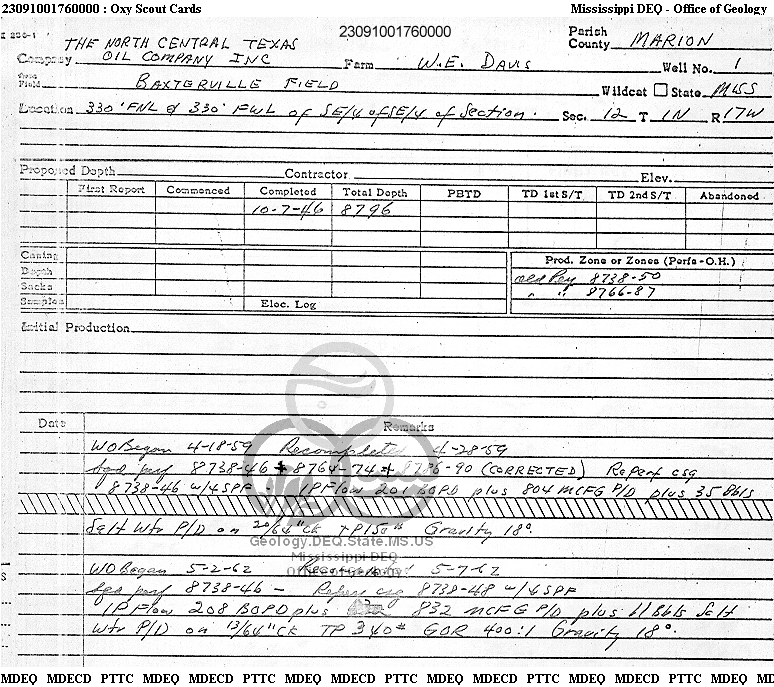 23091001760000 : Oxy Scout Cards Mississippi DEQ - Office of Geology
23091001760000
THE NORTH CENTRAL TEXAS Parish
Company OIL COMPANY INC Farm W.E. DAVIS County MARION Well No. 1
Field BAXTERVILLE FIELD Wildcat State MISS
Location 330' FNL & 330' FWL of SE/4 of SE/4 of Section. Sec. 12 T 1N R 17W
Proposed Depth Contractor Elev.
First Report Commenced Completed Total Depth PBTD TD 1st S/T TD 2nd S/T Abandoned
10-7-46 8796
Casing Prod. Zone or Zones (Perfs-O.H.)
Depth old Pay 8738-50
Sacks " " 8766-87
Samples Elec. Log
Initial Production
Date Remarks
WO Began 4-18-59 Recompleted 4-28-59
sqd perf 8738-46 + 8764-74 + 8786-90 (CORRECTED) Reperf csg
8738-46 w/4SPF - IPFlow 201 BOPD plus 804 MCFG P/D plus 35 Bbls
Salt Wtr P/D on 20/64" CK TP 150# Gravity 18°
Geology.DEQ.State.MS.US
Mississippi DEQ
Office of Geology
WO Began 5-2-62 Recompleted 5-7-62
sqd perf 8738-46 - Reperf csg 8738-48 w/ SPF
IP Flow 208 BOPD plus 832 MCFG P/D plus Bbls Salt
Wtr P/D on 13/64" CK TP 340# GOR 400:1 Gravity 18°.
MDEQ MDECD PTTC MDEQ MDECD PTTC MDEQ MDECD PTTC MDEQ MDECD PTTC MDEQ MD